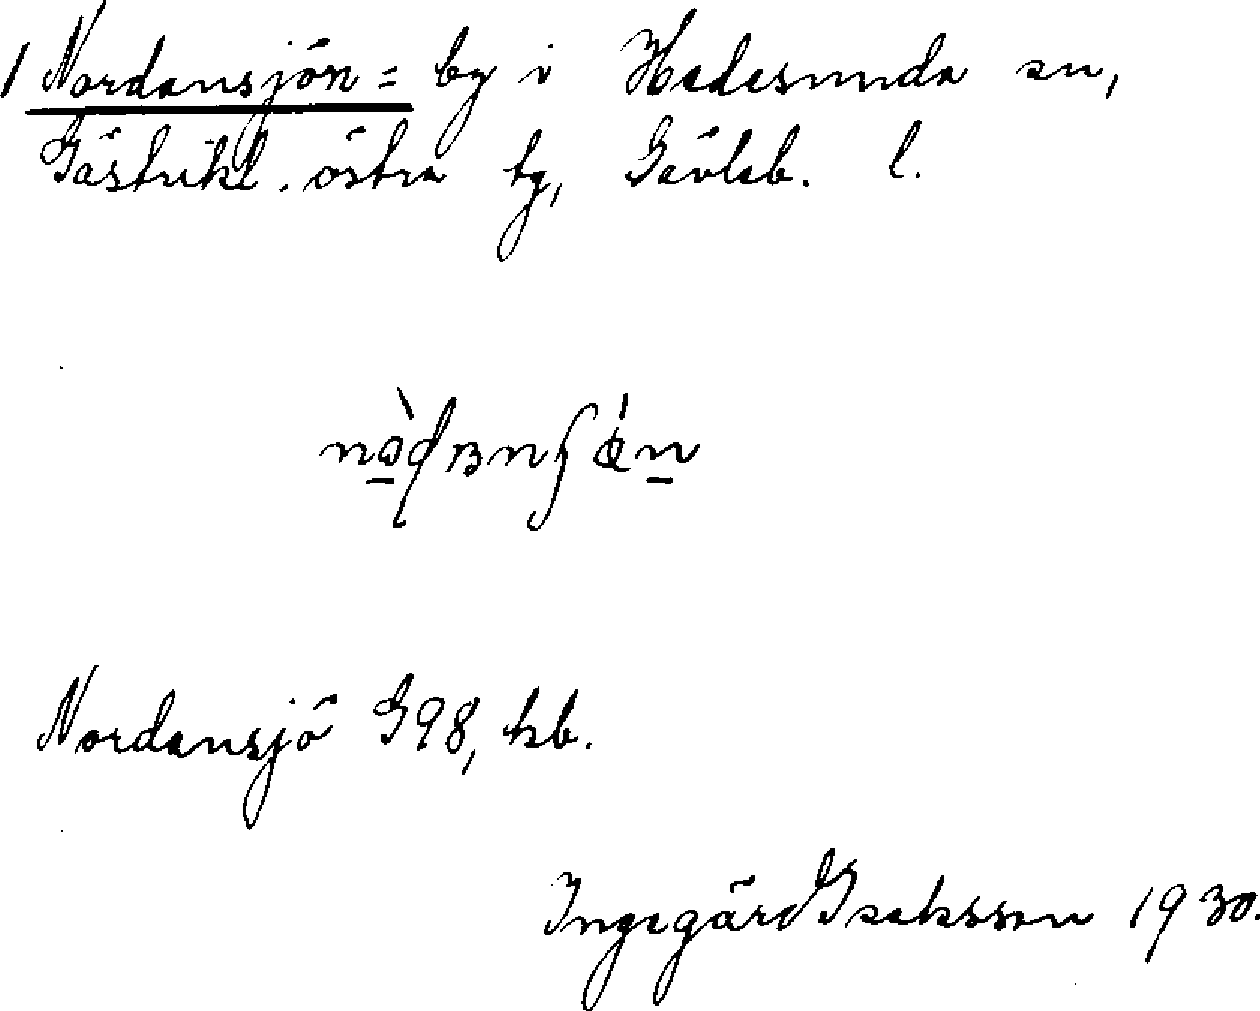 1 Nordansjön = by i Hedesunda sn,
Gästrikl. östra tg, Gävleb. l.
Nordansjö G98, kb.
Ingegärd Isaksson 1930.